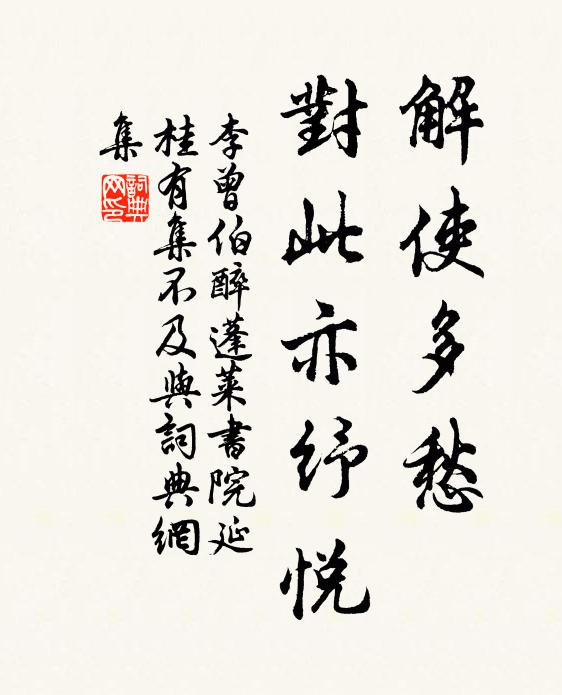 解使多愁
對此亦紓悅
李曾伯醉蓬萊書院延
桂有集不及與詞典網
集
詞典網印